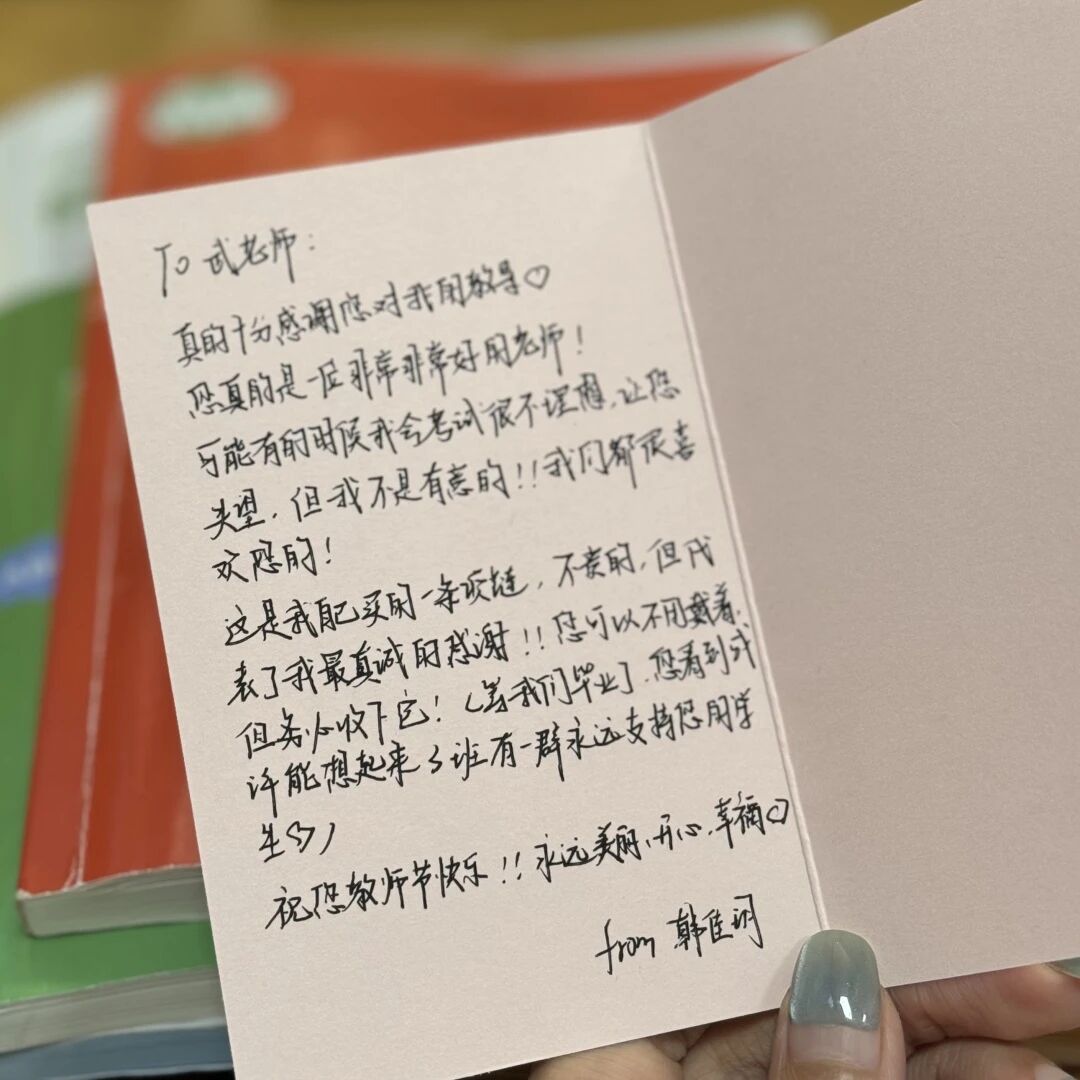 To 武老师：
真的十分感谢您对我的教导♡
您真的是一位非常非常好的老师！
可能有的时候我会考试很不理想，让您
失望，但我不是有意的！！我们都很喜
欢您的！
这是我自己买的一条项链，不贵的，但代
表了我最真诚的感谢！！您可以不用戴着，
但务必收下它！（等我们毕业了，您看到或
许能想起来3班有一群永远支持您的学
生♡）
祝您教师节快乐！！永远美丽、开心、幸福♡
from 韩佳